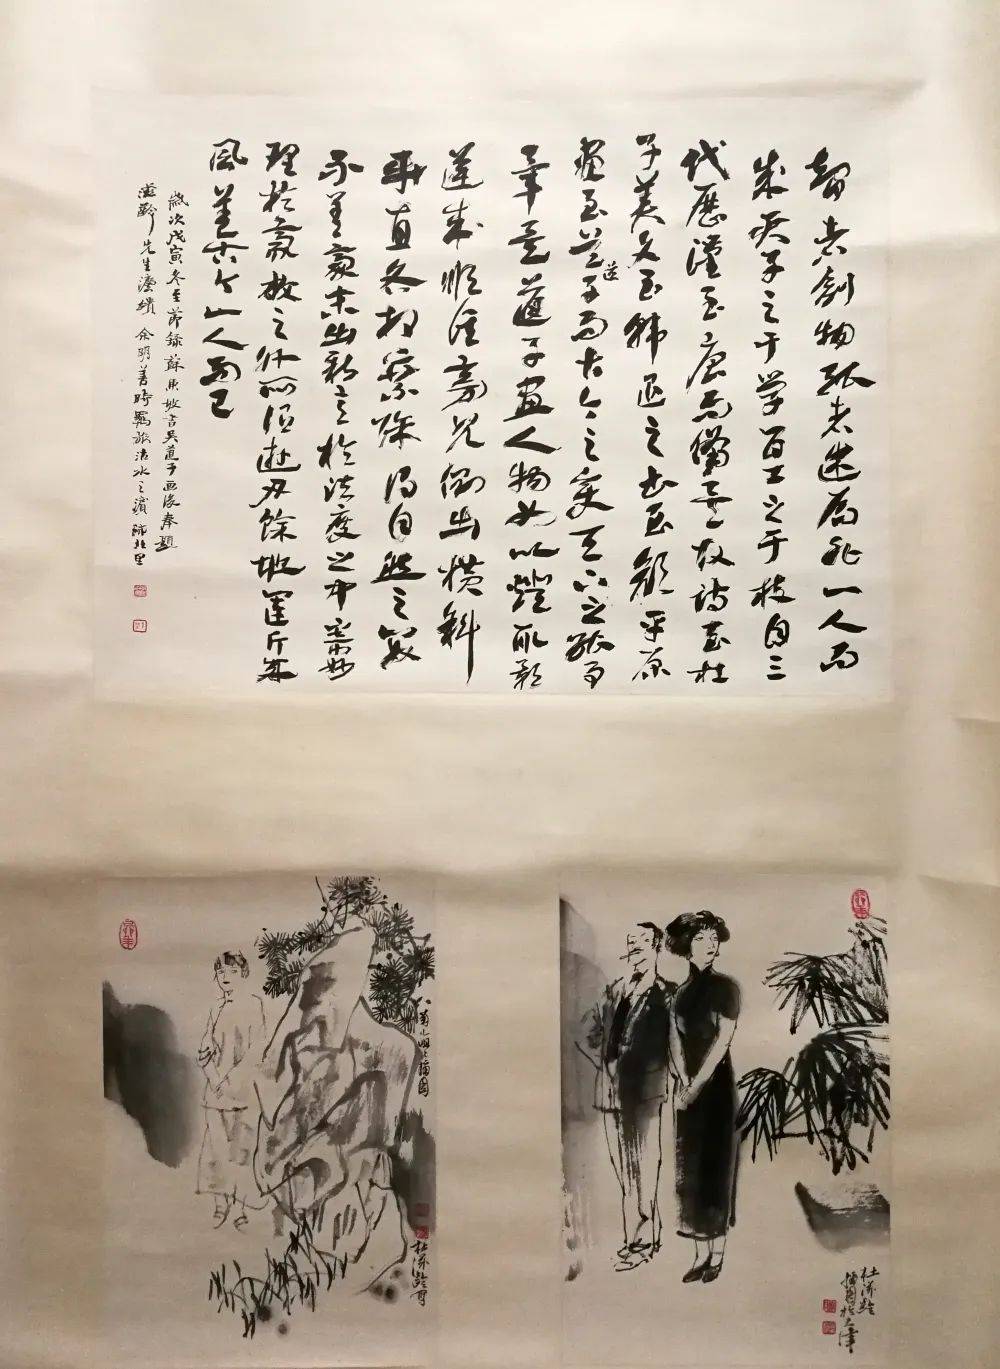 智者創物能者述焉非一人而
成君子之于學百工之于技自三
代歷漢至唐而備矣故詩至杜
子美文至韓退之書至顏平原
畫至吳道子而古今之變天下之能事
畢矣道子畫人物如以燈取影
逆來順往旁見側出橫斜
平直各相乘除得自然之數
不差豪末出新意於法度之中寄妙
理於豪放之外所謂遊刃餘地運斤成
風蓋古今一人而已
歲次戊寅冬至節錄蘇東坡書吳道子画後奉題
滋齡先生 余明善時羈旅沽水之濱
插图
杜滋齡寫
杜滋齡
插图於天津